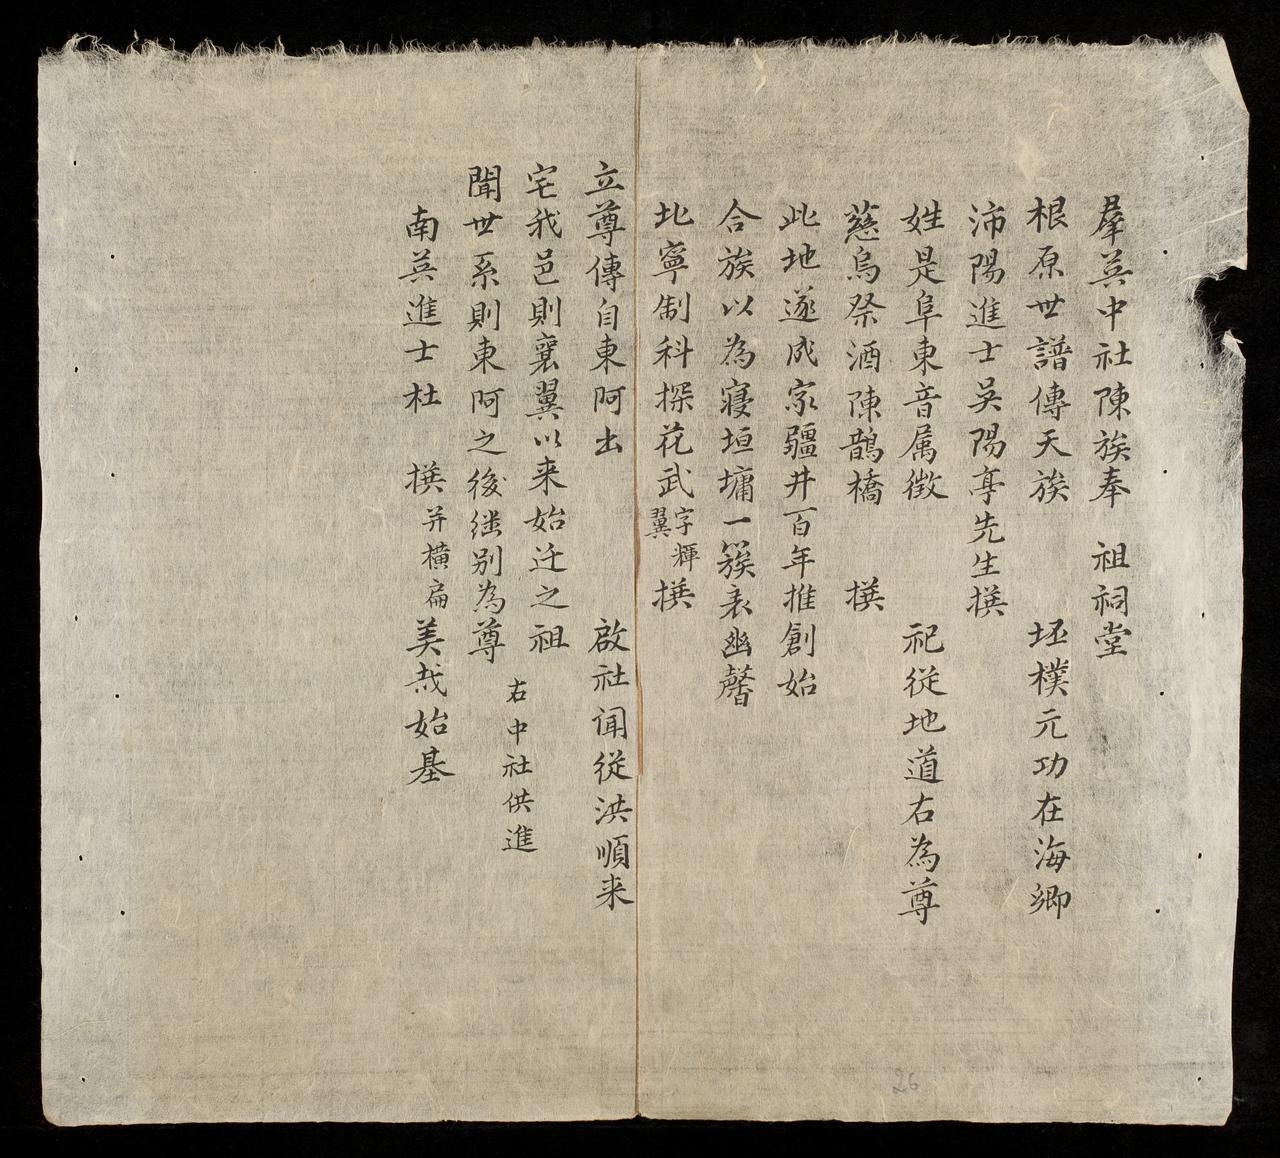 羣英中社陳族奉　祖祠堂
根原世譜傳天族　坯樸元功在海鄉
沛陽進士吳陽亭先生撰
姓是阜東音属徵　祀從地道右為尊
慈烏祭酒陳鵲橋　撰
此地遂成家疆井百年推創始
合族以為寝垣墉一簇衷幽馨
北寧制科探花武字輝翼撰
立尊傳自東阿出　啟社闻從洪順来
宅我邑則襄翼以来始迁之祖
聞世系則東阿之後継别為尊
右中社供進
南英進士杜　撰并横扁美哉始基
26